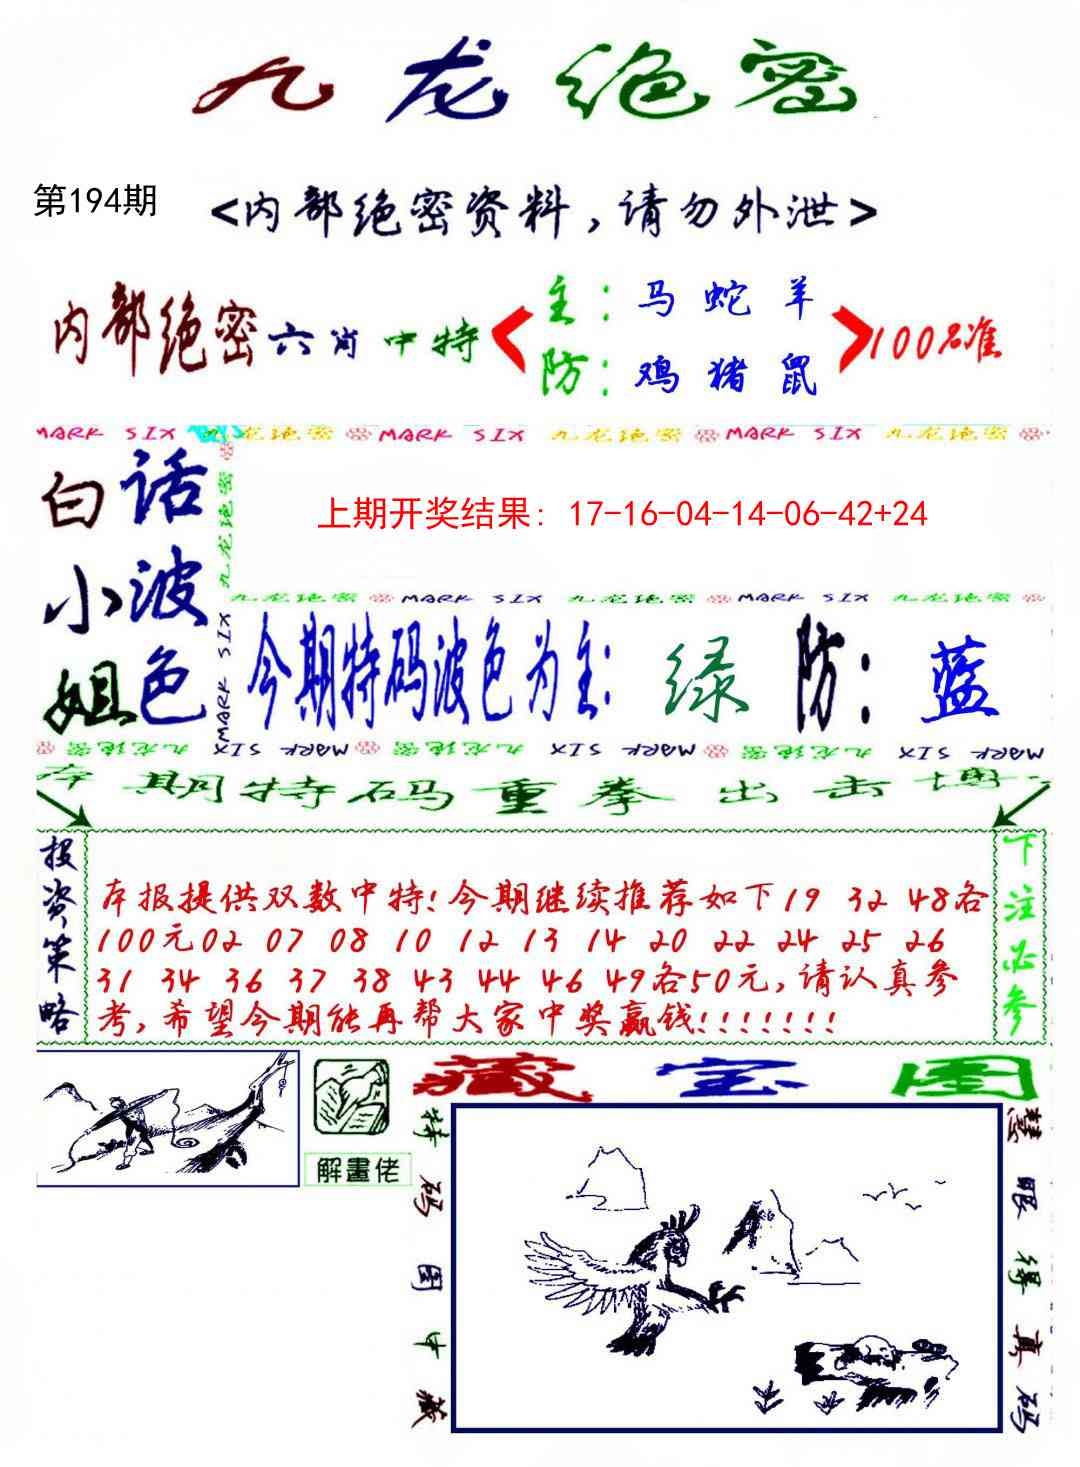 九龙绝密
第194期
<内部绝密资料,请勿外泄>
内部绝密六肖中特
主:马蛇羊
防:鸡猪鼠
100%准
MARK SIX 九龙绝密 MARK SIX 九龙绝密 MARK SIX 九龙绝密
白话
小波
姐色
九龙绝密
MARK SIX
上期开奖结果: 17-16-04-14-06-42+24
九龙绝密 MARK SIX 九龙绝密 MARK SIX 九龙绝密
今期特码波色为主:绿 防:蓝
九龙绝密 MARK SIX 九龙绝密 MARK SIX 九龙绝密 MARK SIX
本期特码重拳出击博
投资策略
本报提供双数中特!今期继续推荐如下19 32 48各
100元02 07 08 10 12 13 14 20 22 24 25 26
31 34 36 37 38 43 44 46 49各50元,请认真参
考,希望今期能再帮大家中奖赢钱!!!!!!!
下注必参
解畫佬
藏宝图
特码图中藏
慧眼得真码